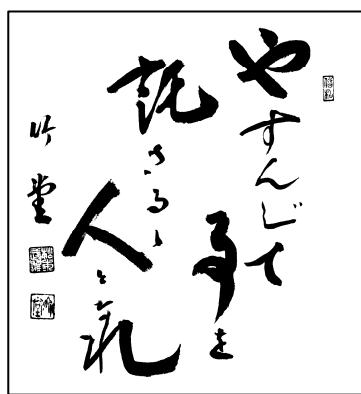 やすんじて
事を
託さるゝ
人となれ
竹堂